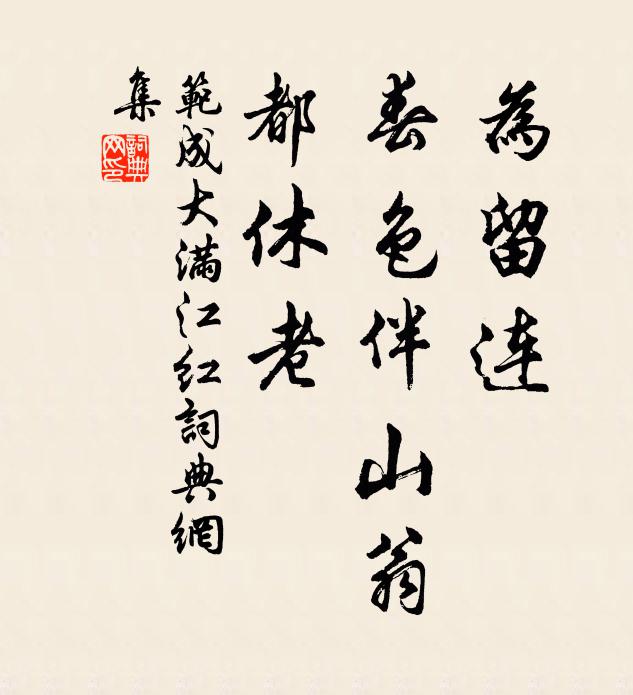 為留連
春色伴山翁
都休老
範成大滿江紅詞典網
集
詞典網印